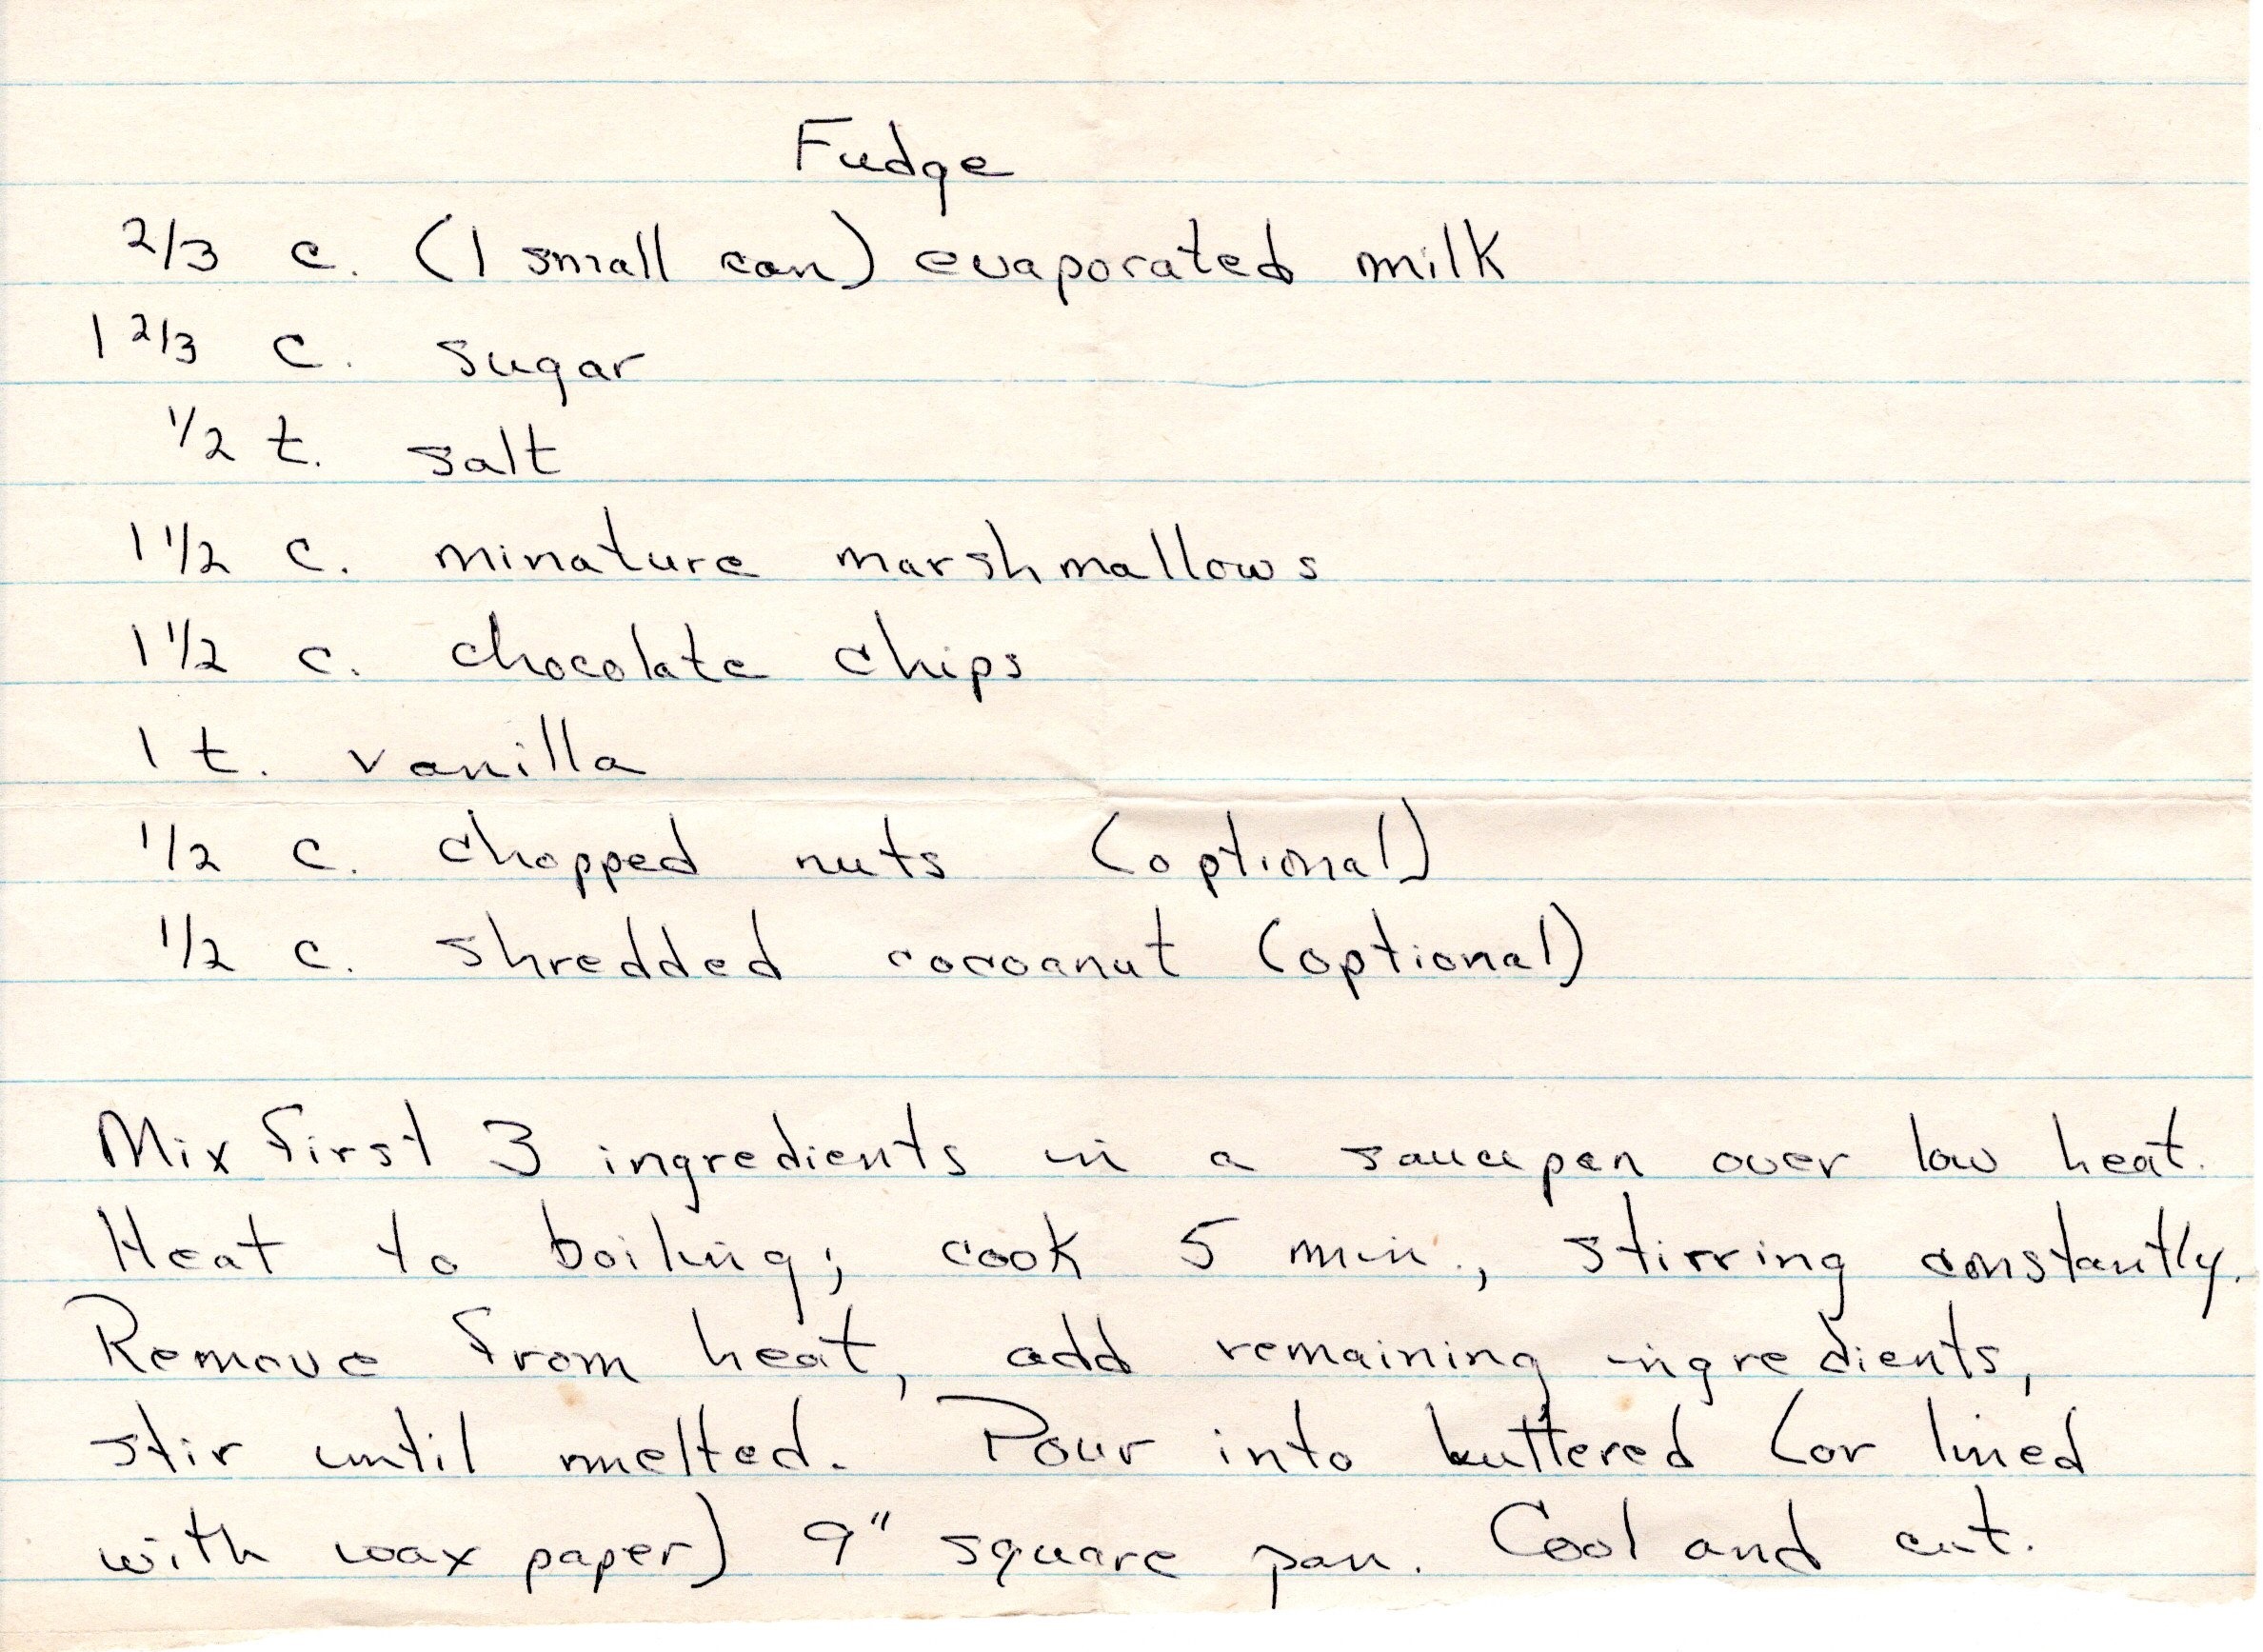 Fudge
2/3 c. (1 small can) evaporated milk
1 2/3 c. sugar
1/2 t. salt
1 1/2 c. minature marshmallows
1 1/2 c. chocolate chips
1 t. vanilla
1/2 c. chopped nuts (optional)
1/2 c. shredded cocoanut (optional)
Mix first 3 ingredients in a saucepan over low heat.
Heat to boiling; cook 5 min., stirring constantly.
Remove from heat, add remaining ingredients,
stir until melted. Pour into buttered (or lined
with wax paper) 9" square pan. Cool and cut.